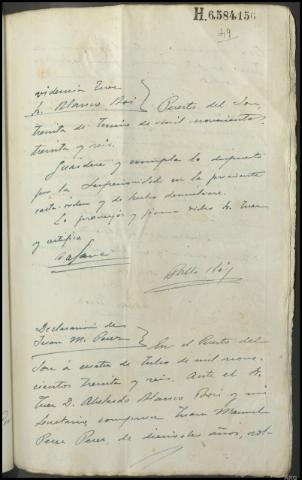 H.6.584.156
49
videncia Juez
Sr. Blanco Boi } Puerto del Son,
treinta de Junio de mil novecientos
treinta y seis.
Guárdese y cumpla lo dispuesto
por la Superioridad en la precedente
carta-orden y de hecho devuélvase.
Lo proveyó y firma dicho Sr. Juez
y certifico
Pablo
Declaración de
Juan M. Perez } En el Puerto del
Son á cuatro de Julio de mil nove-
cientos treinta y seis. Ante el Sr.
Juez D. Abelardo Blanco Boi y mi
Secretario, comparece Juan Manuel
Perez Perez, de dieciseis años, sol-